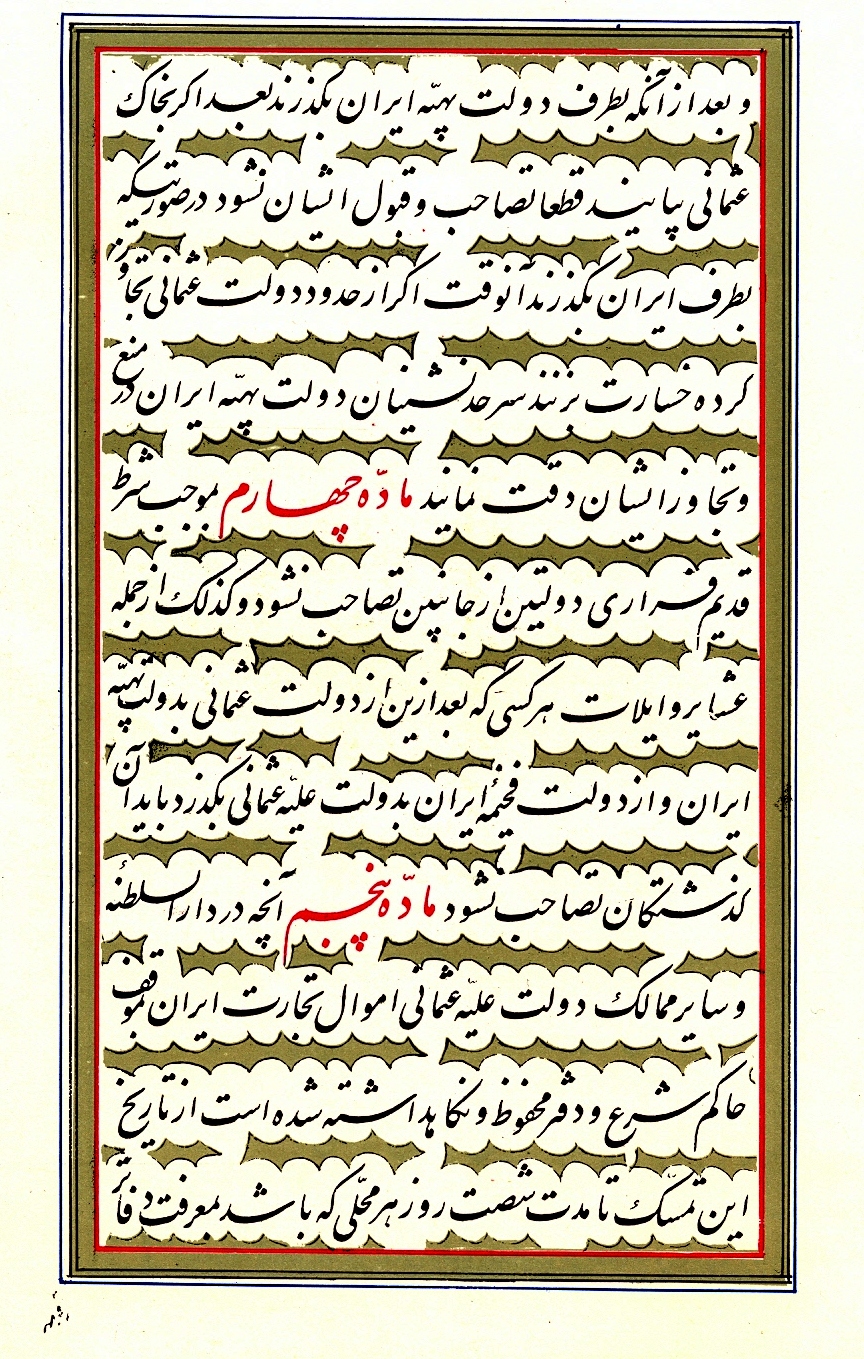 و بعد از آنکه بطرف دولت بهیّه ایران بگذرند بعد اکر بخاک
عثمانی بیایند قطعا تصاحب و قبول ایشان نشود در صورتیکه
بطرف ایران بگذرند آنوقت اکر از حدود دولت عثمانی تجاوز
کرده خسارت بزنند سرحدنشینان دولت بهیّه ایران در منع
و تجاوز ایشان دقت نمایند مادّه چهارم بموجب شرط
قدیم فراری دولتین از جانبین تصاحب نشود و کذلک از جمله
عشایر و ایلات هر کسی که بعد ازین از دولت عثمانی بدولت بهیّه
ایران و از دولت فخیمهٔ ایران بدولت علیّه عثمانی بگذرد باید آن
گذشتکان تصاحب نشود مادّه پنجم آنچه در دار السلطنهٔ
و سایر ممالک دولت علیّه عثمانی اموال تجارت ایران بموقف
حاکم شرع و دفتر محفوظ و نکاهداشته شده است از تاریخ
این تمسّک تا مدت شصت روز هر محلّی که باشد بمعرفت دفاتر